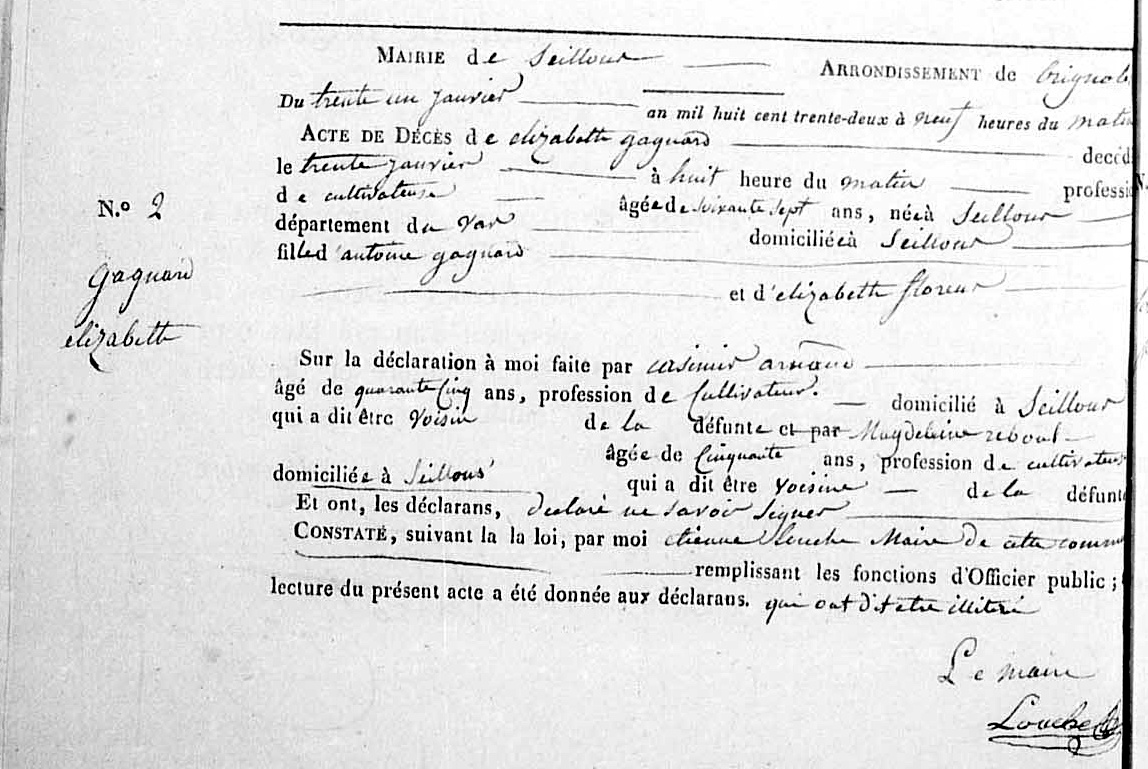 MAIRIE de Seillons ARRONDISSEMENT de brignole
Du trente un janvier an mil huit cent trente-deux à neuf heures du matin
ACTE DE DÉCÈS de elizabeth gagnard decéd
le trente janvier à huit heure du matin professi
de cultivateuse âgée de soixante sept ans, née à Seillons
département du var domiciliée à Seillons
fille d'antoine gagnard
et d'elizabeth floreus
N.º 2
gagnard
elizabeth
Sur la déclaration à moi faite par casimir arnaud
âgé de quarante Cinq ans, profession de Cultivateur. domicilié à Seillons
qui a dit être voisin de la défunte et par Magdeleine reboul
âgée de Cinquante ans, profession de cultivateuse
domiciliée à Seillons qui a dit être voisine de la défunte
Et ont, les déclarans, declaré ne savoir signer
CONSTATÉ, suivant la la loi, par moi etienne Louche Maire de cette commu
remplissant les fonctions d'Officier public ;
lecture du présent acte a été donnée aux déclarans. qui ont dit etre illitré
Le maire
Louche